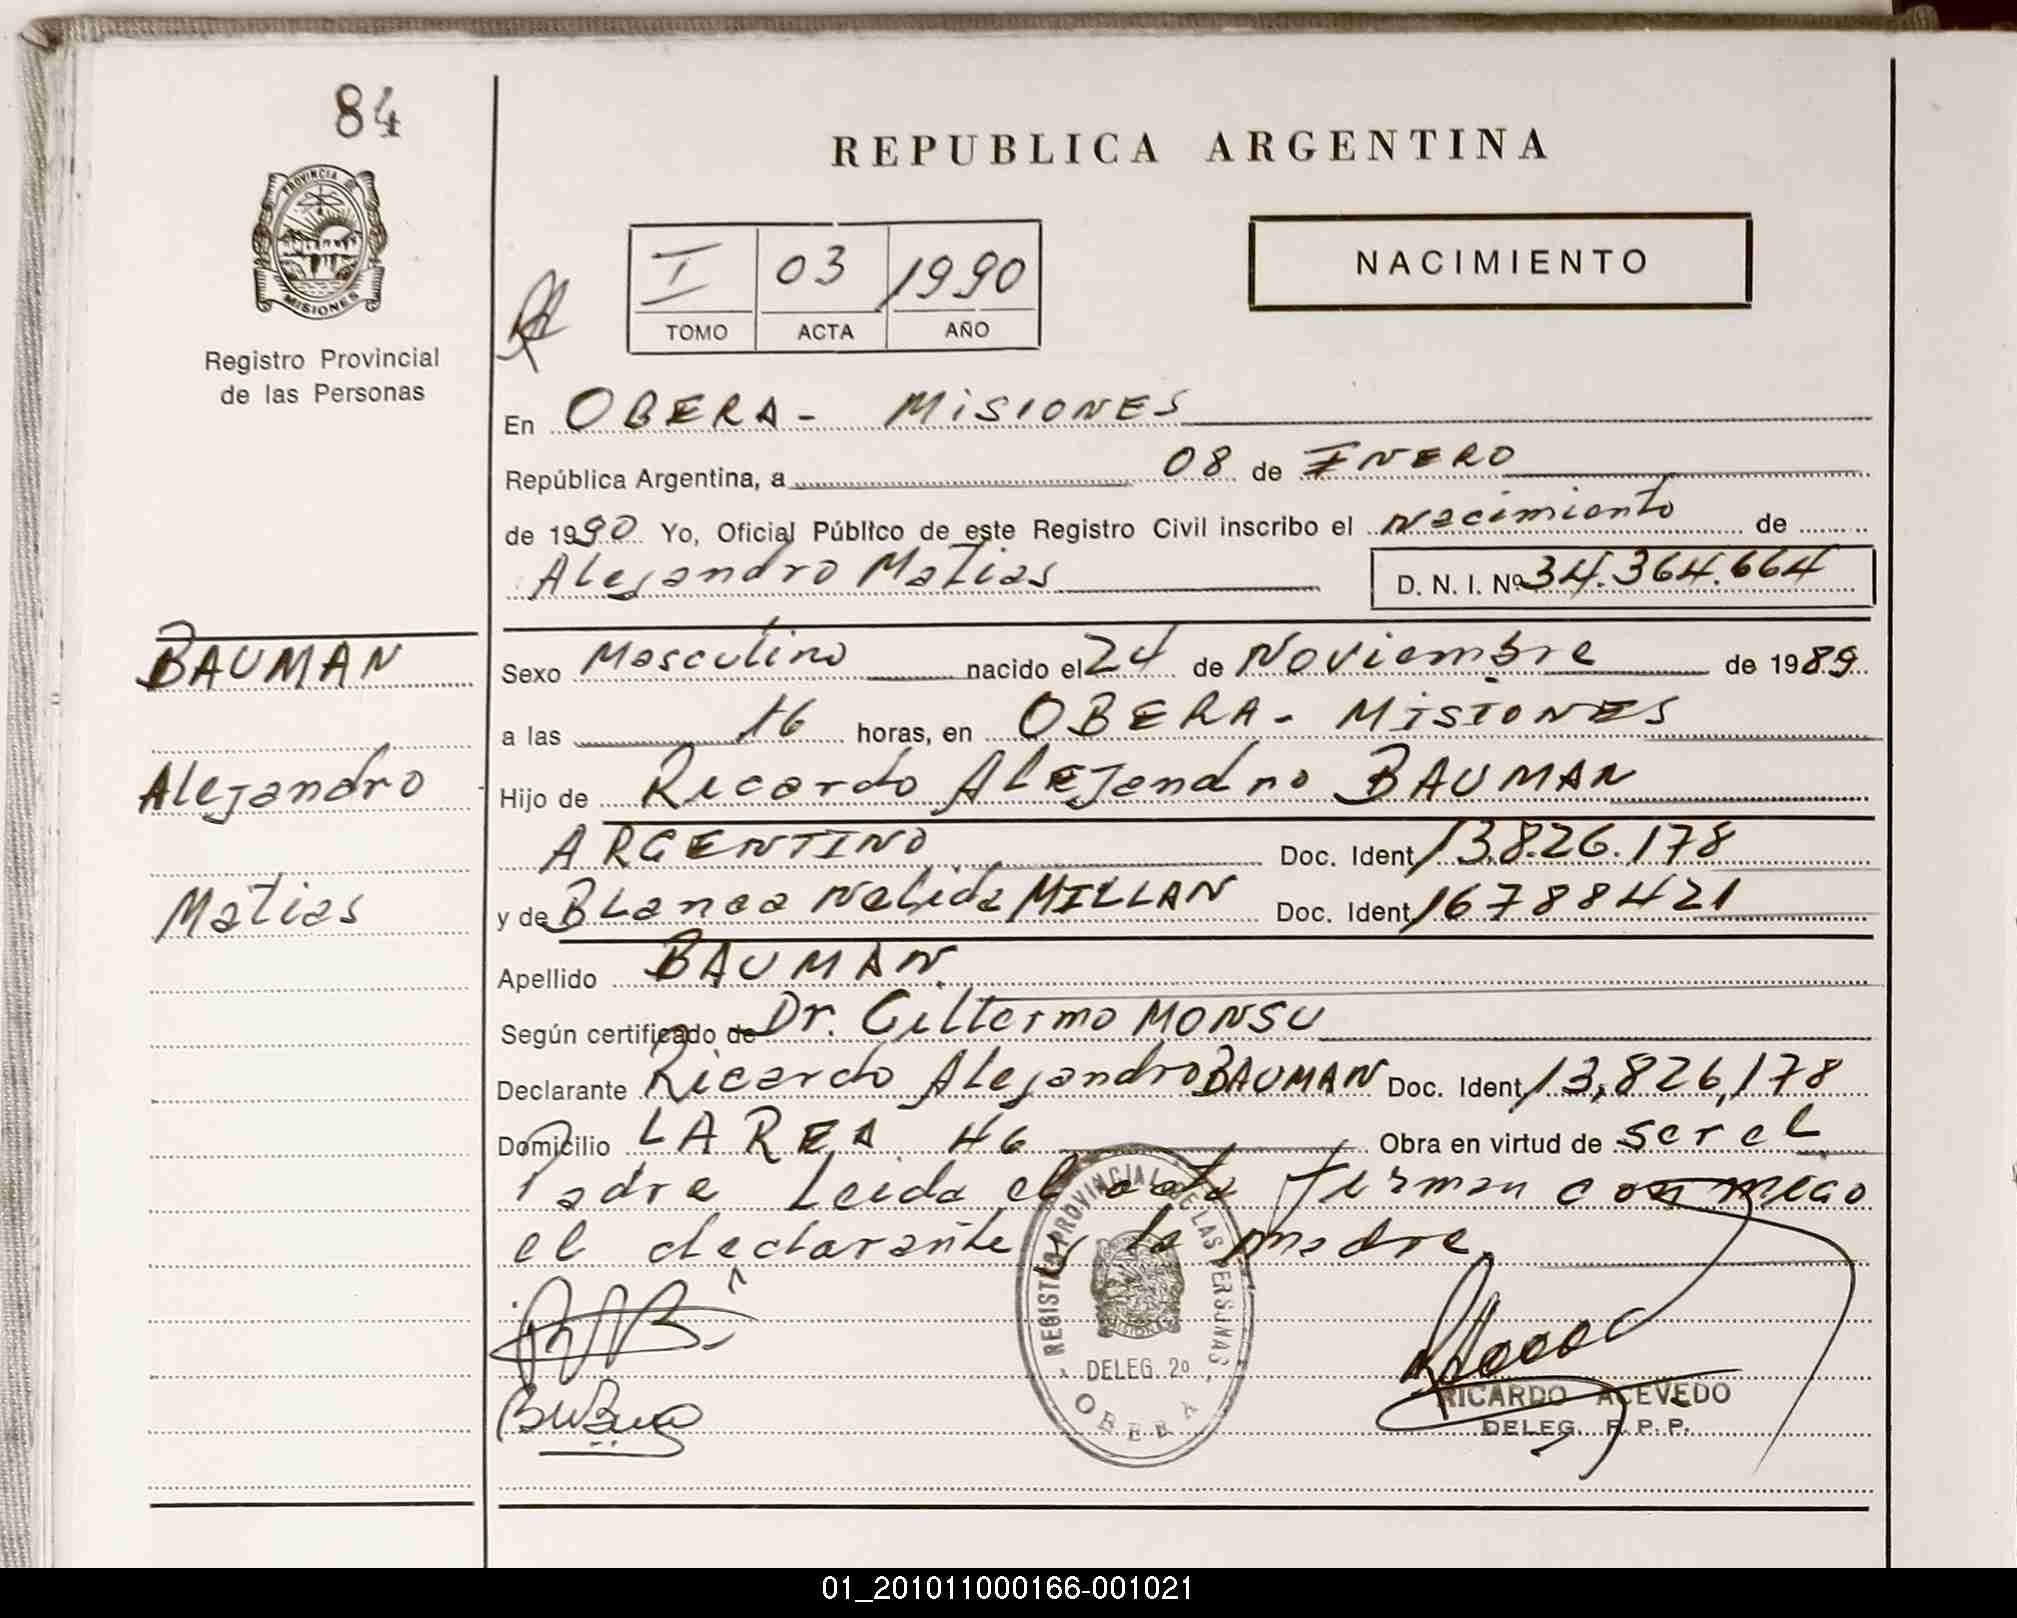 84
REPUBLICA ARGENTINA
PROVINCIA DE
MISIONES
Registro Provincial
de las Personas
I 03 1990
TOMO ACTA AÑO
NACIMIENTO
En OBERA - MISIONES
República Argentina, a 08 de ENERO
de 1990 Yo, Oficial Público de este Registro Civil inscribo el nacimiento de
Alejandro Matias D. N. I. Nº 34.364.664
BAUMAN
Alejandro
Matias
Sexo Masculino nacido el 24 de Noviembre de 1989
a las 16 horas, en OBERA - MISIONES
Hijo de Ricardo Alejandro BAUMAN
ARGENTINO Doc. Ident. 13.826.178
y de Blanca Nelida MILLAN Doc. Ident. 16788421
Apellido BAUMAN
Según certificado de Dr. Gillermo MONSU
Declarante Ricardo Alejandro BAUMAN Doc. Ident. 13,826,178
Domicilio LAREA 46 Obra en virtud de ser el
Padre Leida el acta firman conmigo
el declarante y la madre.
REGISTRO PROVINCIAL DE LAS PERSONAS
MISIONES
DELEG. 2º
OBERA
RICARDO ACEVEDO
DELEG. R. P. P.
01_201011000166-001021